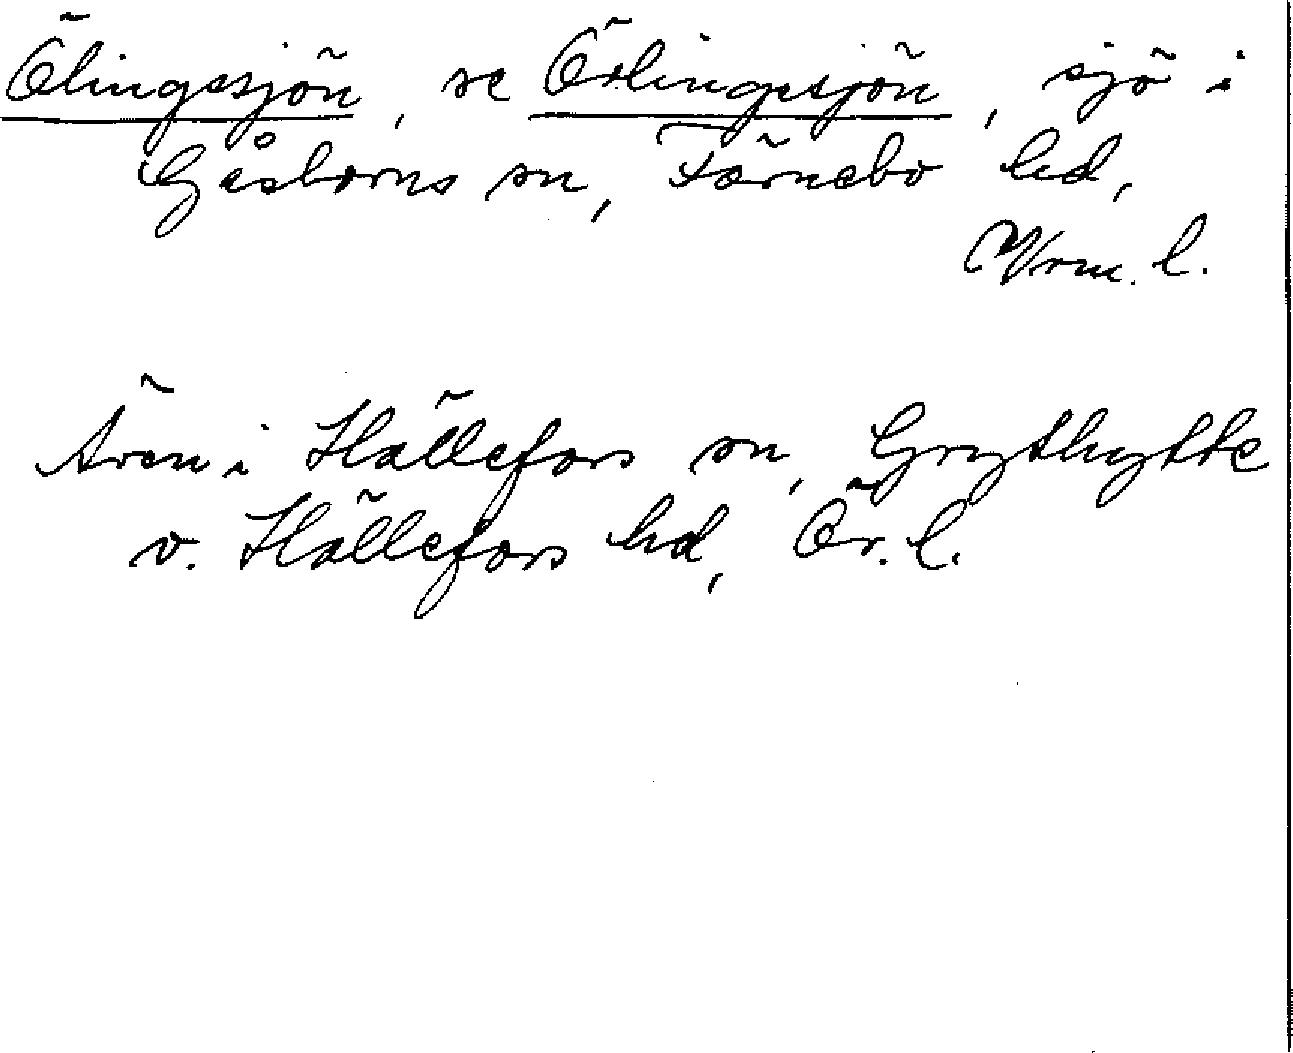 Ölingsjön, se Örlingsjön, sjö i
Gåsborns sn, Färnebo hd,
Vrm. l.
Även i Hällefors sn, Grythytte
o. Hällefors hd, Ör. l.